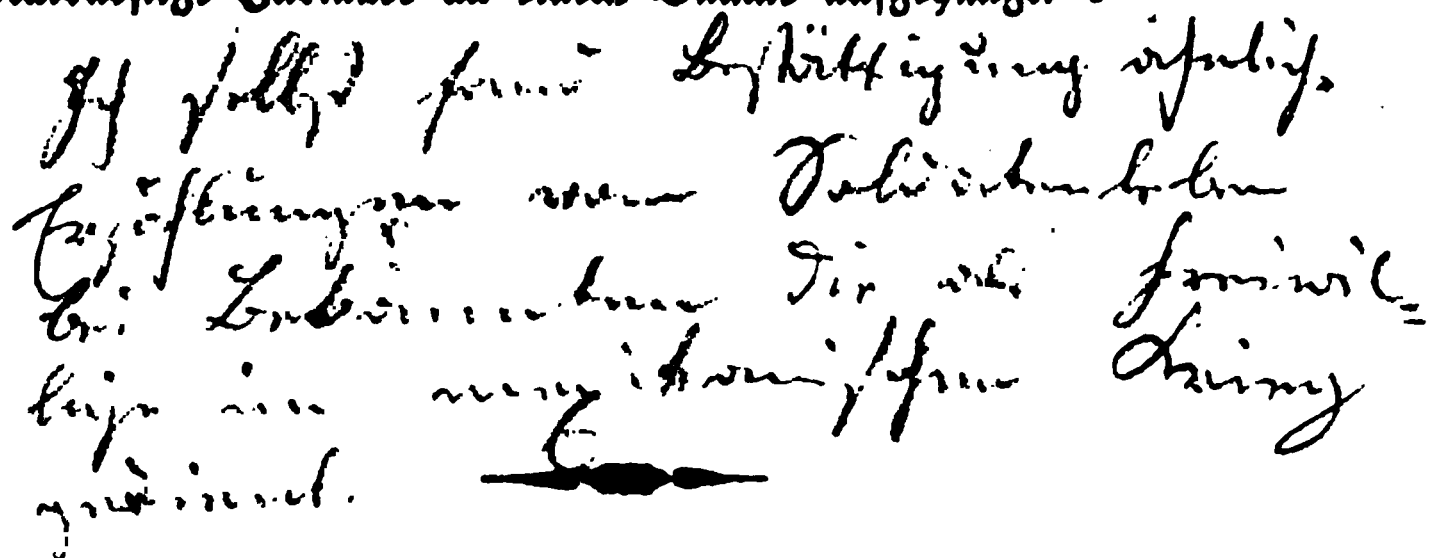 Ich selbst fand Bestättigung ähnlich.
Erzählungen vom Soldatenleben
bei Bekannten die als Freiwil=
lige im mexikanischen Krieg
gedient.